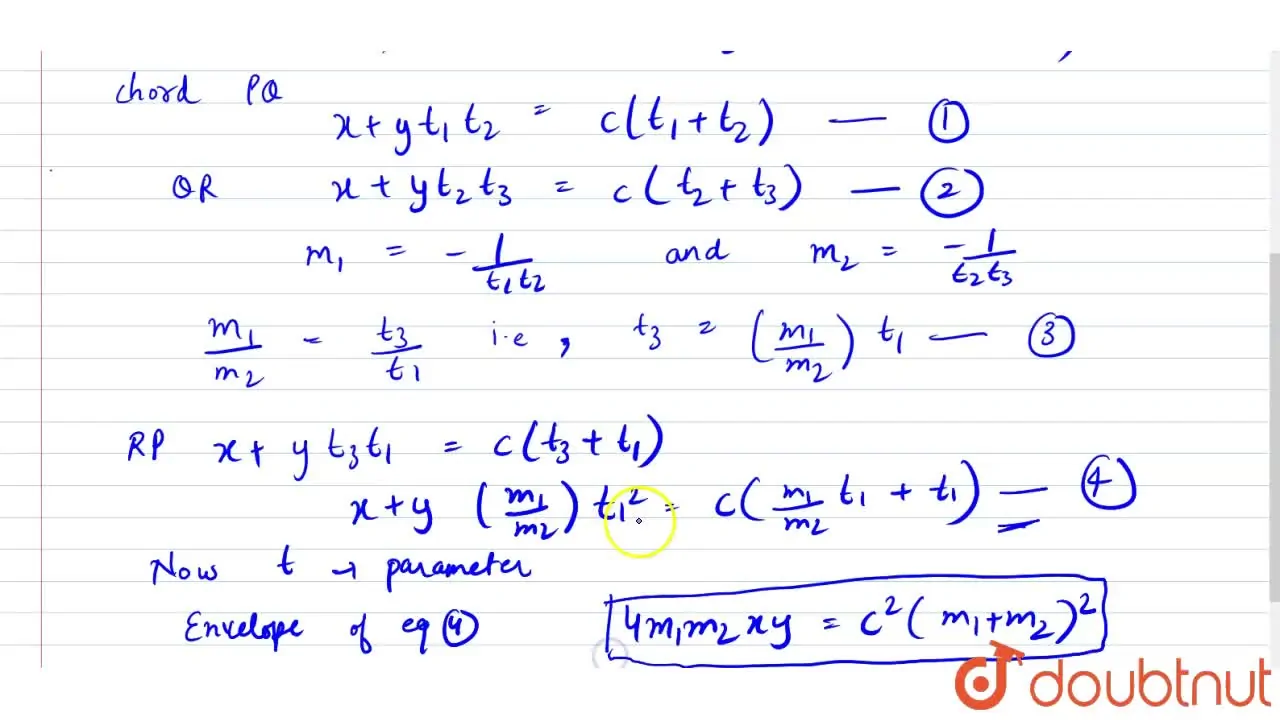 chord PQ
x + y t₁ t₂ = c(t₁ + t₂) — ①
QR x + y t₂ t₃ = c(t₂ + t₃) — ②
m₁ = - 1/t₁t₂ and m₂ = - 1/t₂t₃
m₁/m₂ = t₃/t₁ i.e, t₃ = (m₁/m₂) t₁ — ③
RP x + y t₃t₁ = c(t₃ + t₁)
x + y (m₁/m₂) t₁² = c(m₁/m₂ t₁ + t₁) — ④
Now t → parameter
Envelope of eq ④ 4m₁m₂xy = c²(m₁+m₂)²
doubtnut